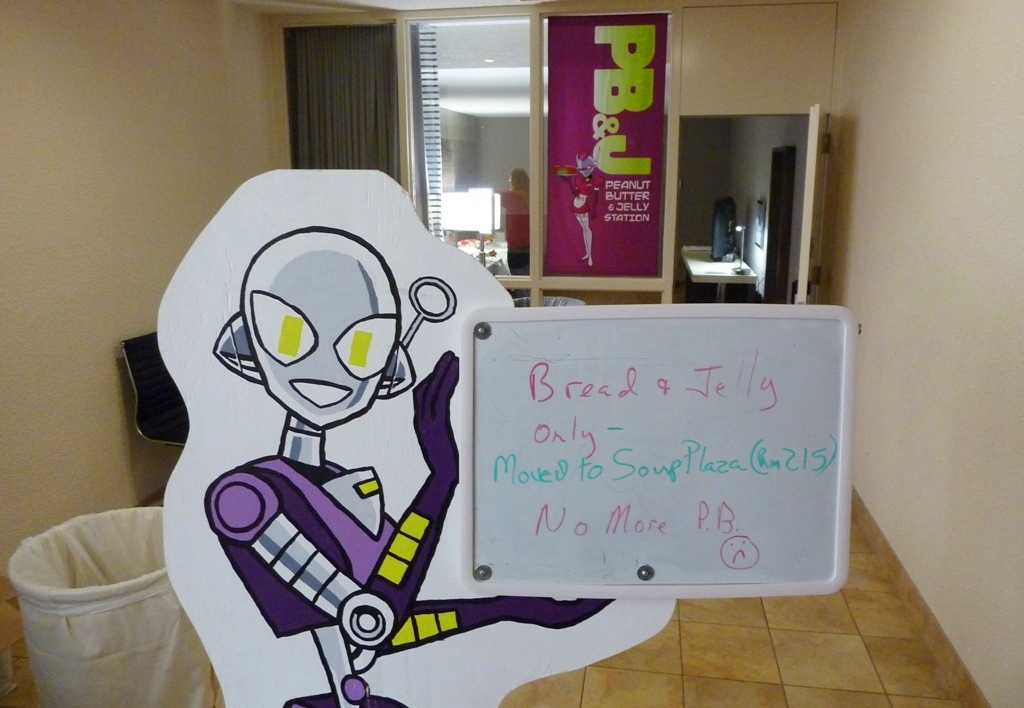 PB
&J
PEANUT
BUTTER
& JELLY
STATION
Bread & Jelly
only -
Moved to Soup Plaza (Rm 215)
No More P.B.